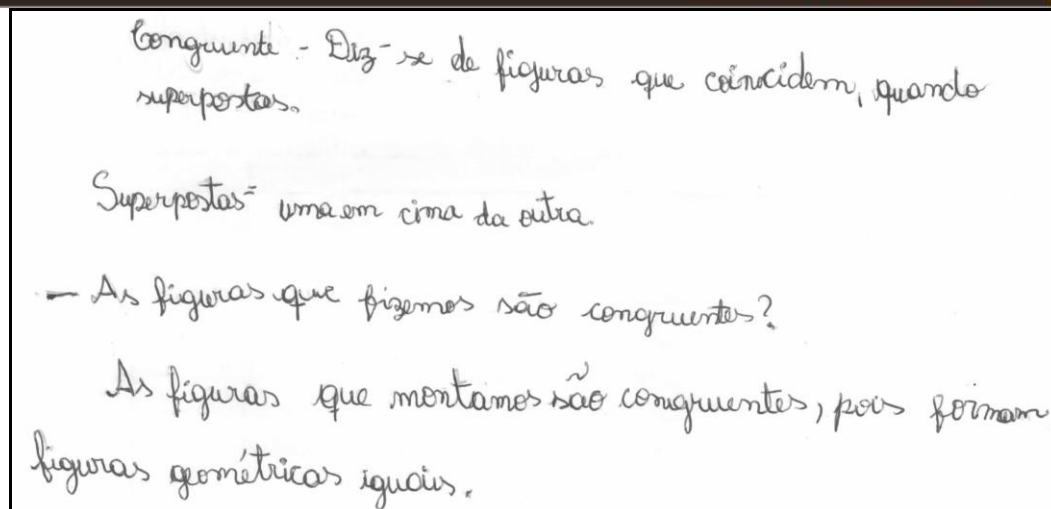 Congruente - Diz-se de figuras que coincidem, quando
superpostas.
Superpostas = uma em cima da outra.
- As figuras que fizemos são congruentes?
As figuras que montamos são congruentes, pois formam
figuras geométricas iguais.